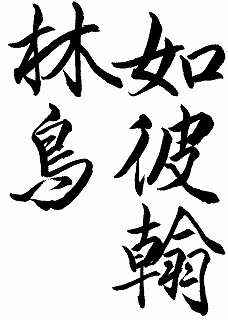 如彼翰
林鳥